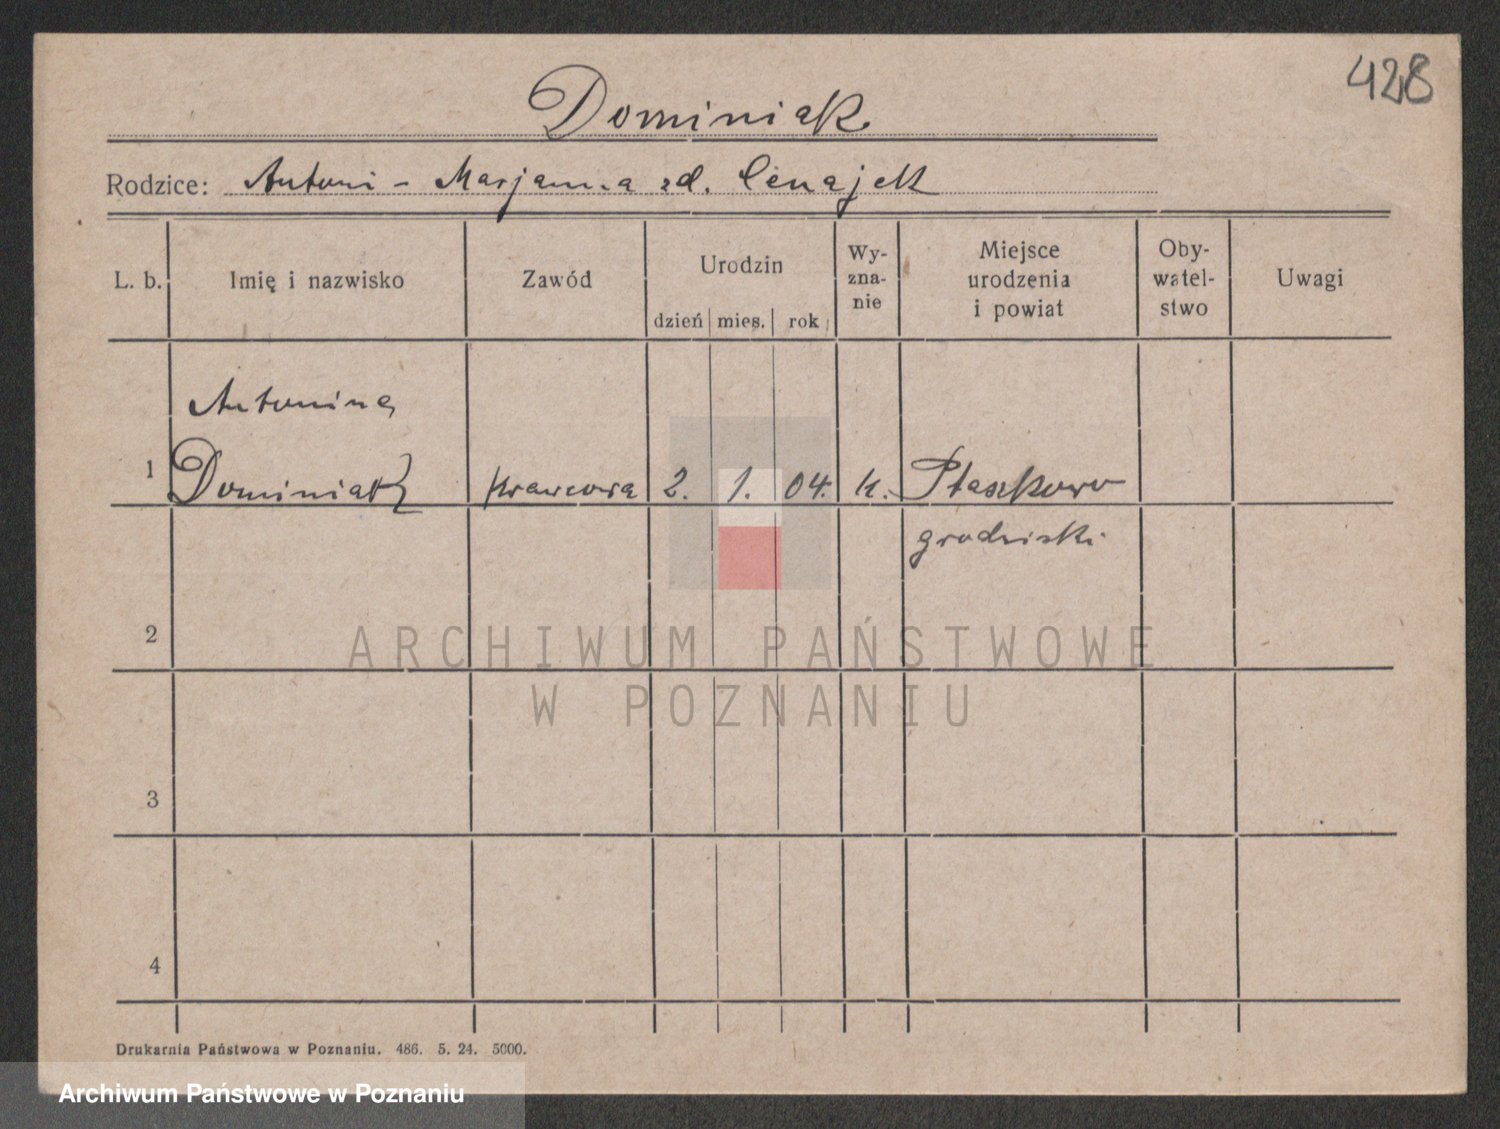 428
Dominiak
Rodzice: Antoni - Marjanna zd. Cenajek
L. b.
Imię i nazwisko
Zawód
Urodzin
dzień mies. rok
Wy-
zna-
nie
Miejsce
urodzenia
i powiat
Oby-
watel-
stwo
Uwagi
Antonina
1 Dominiak krawcowa 2. 1. 04. k. Ptaszkowo
grodziski
2
ARCHIWUM PAŃSTWOWE
W POZNANIU
3
4
Drukarnia Państwowa w Poznaniu. 486. 5. 24. 5000.
Archiwum Państwowe w Poznaniu